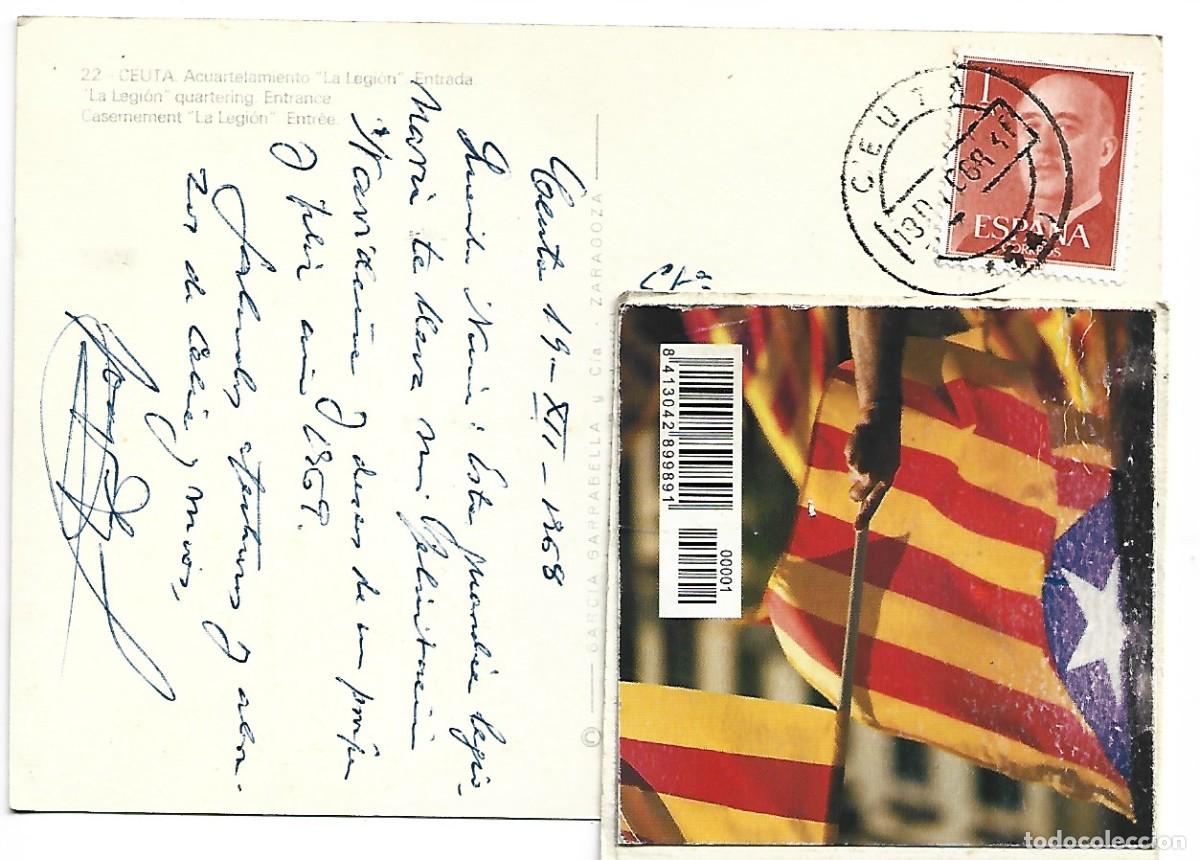 22 - CEUTA. Acuartelamiento "La Legión". Entrada.
"La Legión" quartering. Entrance
Casernement "La Legión". Entrée.
Ceuta 19-XII-1968
Querida Nuria: Este guardia legio-
nario te lleva mi felicitación
Navideña y deseos de un prospe
y feliz año 1969.
Saludos afectuosos y abra-
zos de Celia y míos,
© GARCIA GARRABELLA y Cía. - ZARAGOZA
CEUTA
1
ESPAÑA
CORREOS
8 413042 899891
00001
todocoleccion